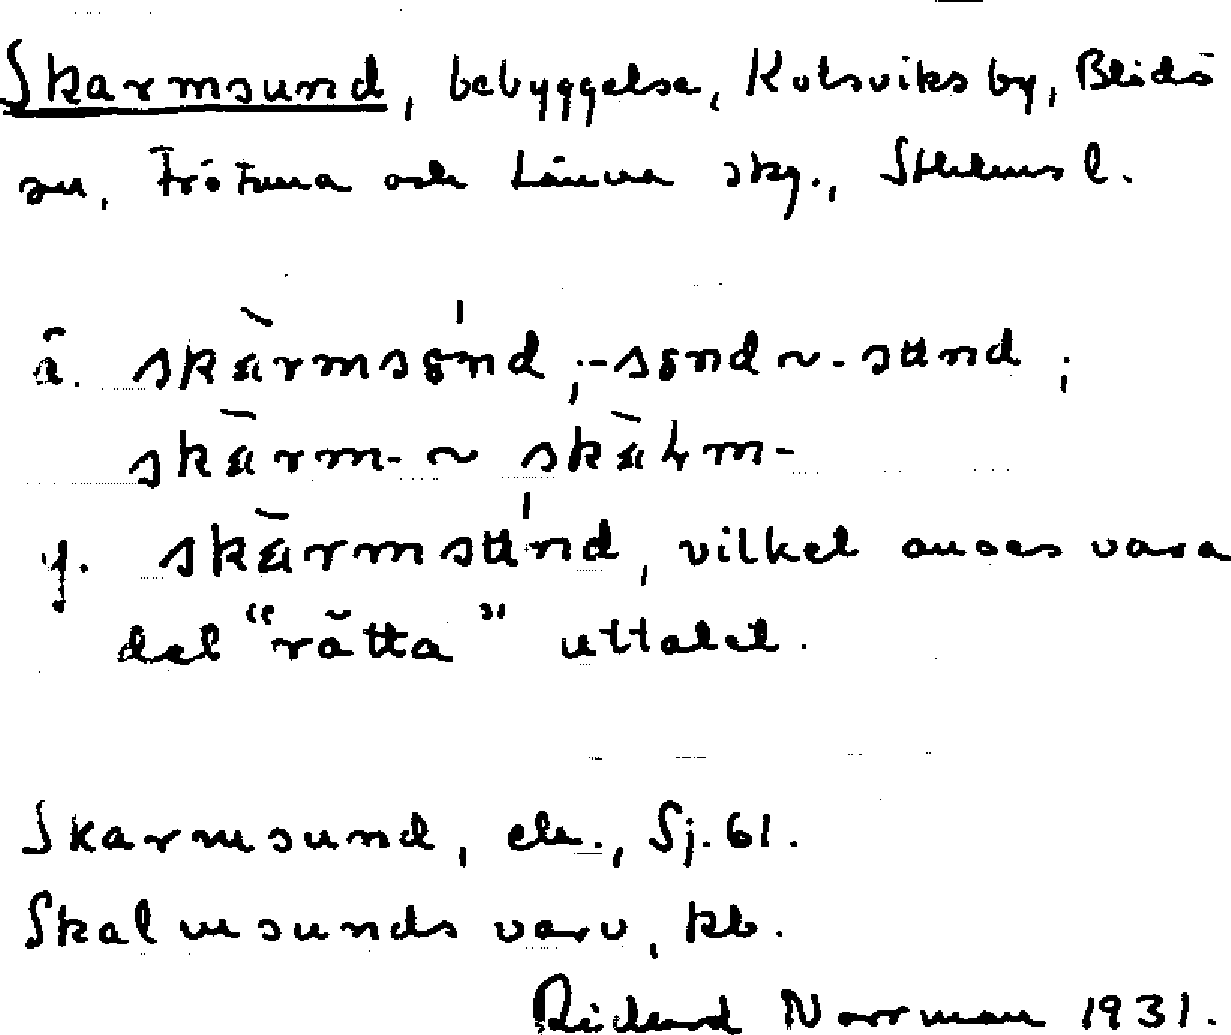 Skarmsund, bebyggelse, Kolsviks by, Blidö
sn, Frötuna och Länna skg., Sthlms l.
ä. skàrmsǫ́nd ;-sǫnd ~ -sttnd ;
skàrm- ~ skàłm-
y. skàrmsttńd, vilket anses vara
det "rätta" uttalet.
Skarmsund, ek., Sj. 61.
Skalmsunds varv, kb.
Rickard Norrman 1931.